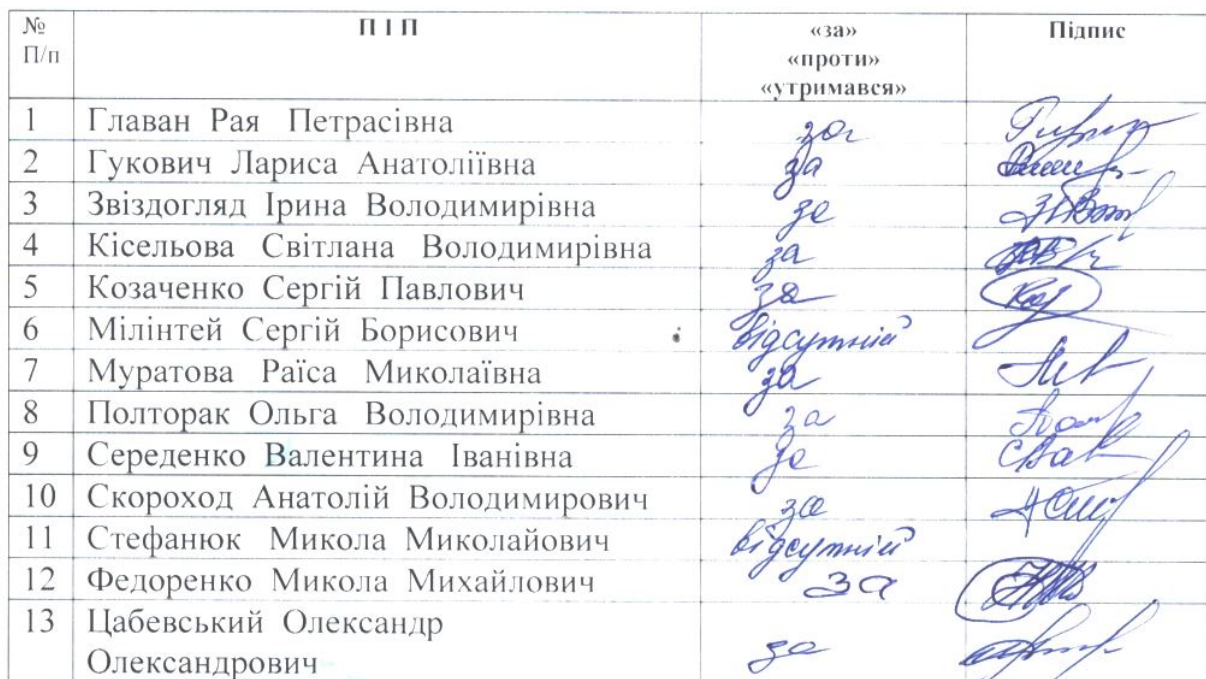 № П І П «за» Підпис
П/п «проти»
«утримався»
1 Главан Рая Петрасівна за
2 Гукович Лариса Анатоліївна за
3 Звіздогляд Ірина Володимирівна за
4 Кісельова Світлана Володимирівна за
5 Козаченко Сергій Павлович за
6 Мілінтей Сергій Борисович відсутній
7 Муратова Раїса Миколаївна за
8 Полторак Ольга Володимирівна за
9 Середенко Валентина Іванівна за
10 Скороход Анатолій Володимирович за
11 Стефанюк Микола Миколайович відсутній
12 Федоренко Микола Михайлович за
13 Цабевський Олександр
Олександрович за